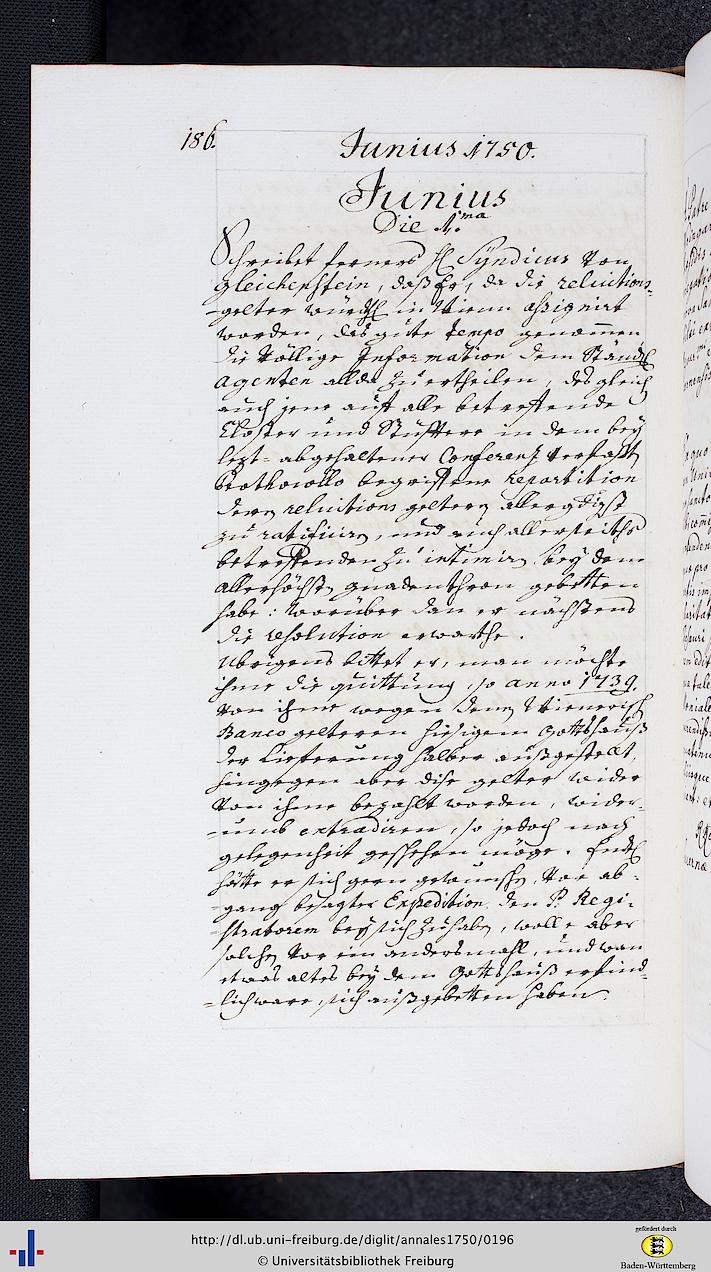 186.
Junius 1750.
Junius
Die 1.ma
Schreibet ferners H Syndicus von
gleichenstein, daß Er, da die reluitions-
-gelter würckl in Wienn assignirt
worden, das gute tempo genommen
die völlige Information dem Ständl
agenten allda zu ertheilen, desgleich
auch jene auff alle betreffende
Clöster und Stüffter in dem bey
lezt-abgehaltener Conferenz verfaßt
Prothocollo begriffene repartition
deren reluitions geltern allergdigst
zu ratificiren, und auch allerseiths
betreffenden zu intimiren, bey dem
allerhöchst gnadenthron gebetten
habe: worüber dan er nächstens
die resolution erwarthe.
Ubrigens bittet er, man möchte
ihme die quittung, so anno 1739.
von ihme wegen denen Wienerisch
Banco gelteren hiesigem Gottshauß
der Lieferung halber außgestelt,
hingegen aber dise gelter wider
von ihme bezahlt worden, wider-
-umb extradiren, so jedoch nach
gelegenheit geschehen möge. Endl
hätte er sich gern gewunschen, vor ab-
gang besagter Expedition den P. Regi-
stratorem bey sich zu haben, wolle aber
solches vor ein andersmahl, und wan
etwas altes bey dem Gottshauß erfind-
-lich ware, sich außgebetten haben.
http://dl.ub.uni-freiburg.de/diglit/annales1750/0196
© Universitätsbibliothek Freiburg
gefördert durch
Baden-Württemberg